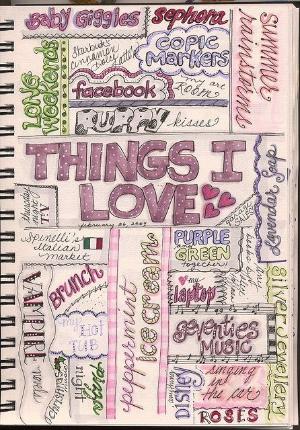 Baby Giggles
sephora
summer
rainstorms
Long
weekends
Starbuck's
cinnamon
dolce latte
COPIC
MARKERS
facebook
my art
Room
PUPPY kisses
THINGS I
LOVE
february 26, 2009
Lavender Soap
thursday
night
T.V.
Spinelli's
Italian
market
PURPLE
GREEN
together
Brunch
peppermint
ice cream
my
laptop
silver Jewellery
VAMPIRE
movies
my
HOT
TUB
pizza
night
seventies
MUSIC
Disney
singing
in
the car
ROSES